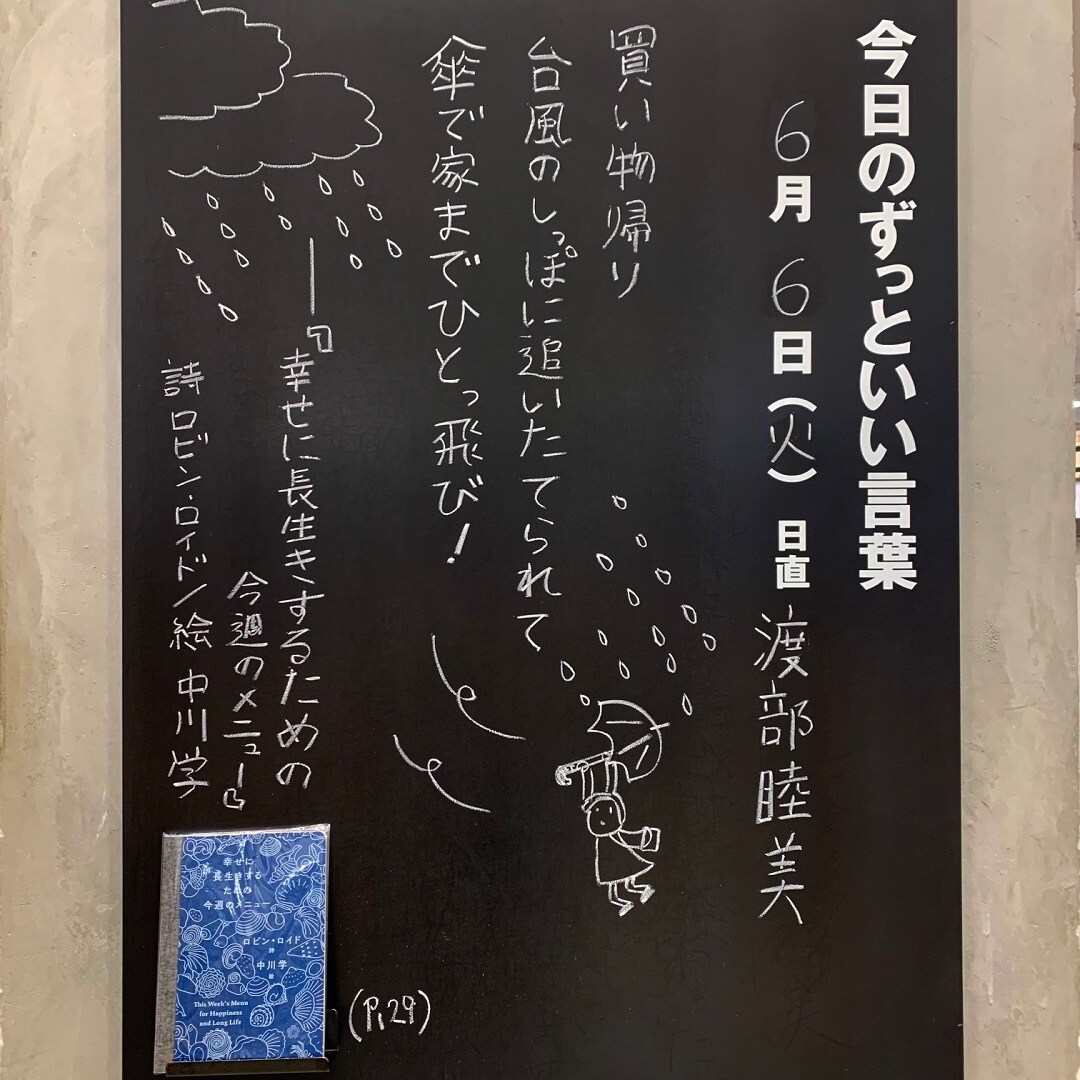 今日のずっといい言葉
6月6日(火) 日直 渡部睦美
買い物帰り
台風のしっぽに追いたてられて
傘で家までひとっ飛び!
―『幸せに長生きするための
今週のメニュー』
詩 ロビン・ロイド/絵 中川学
幸せに
長生きする
ための
今週のメニュー
ロビン・ロイド
詩
中川学
絵
This Week's Menu
for Happiness
and Long Life
(P.29)